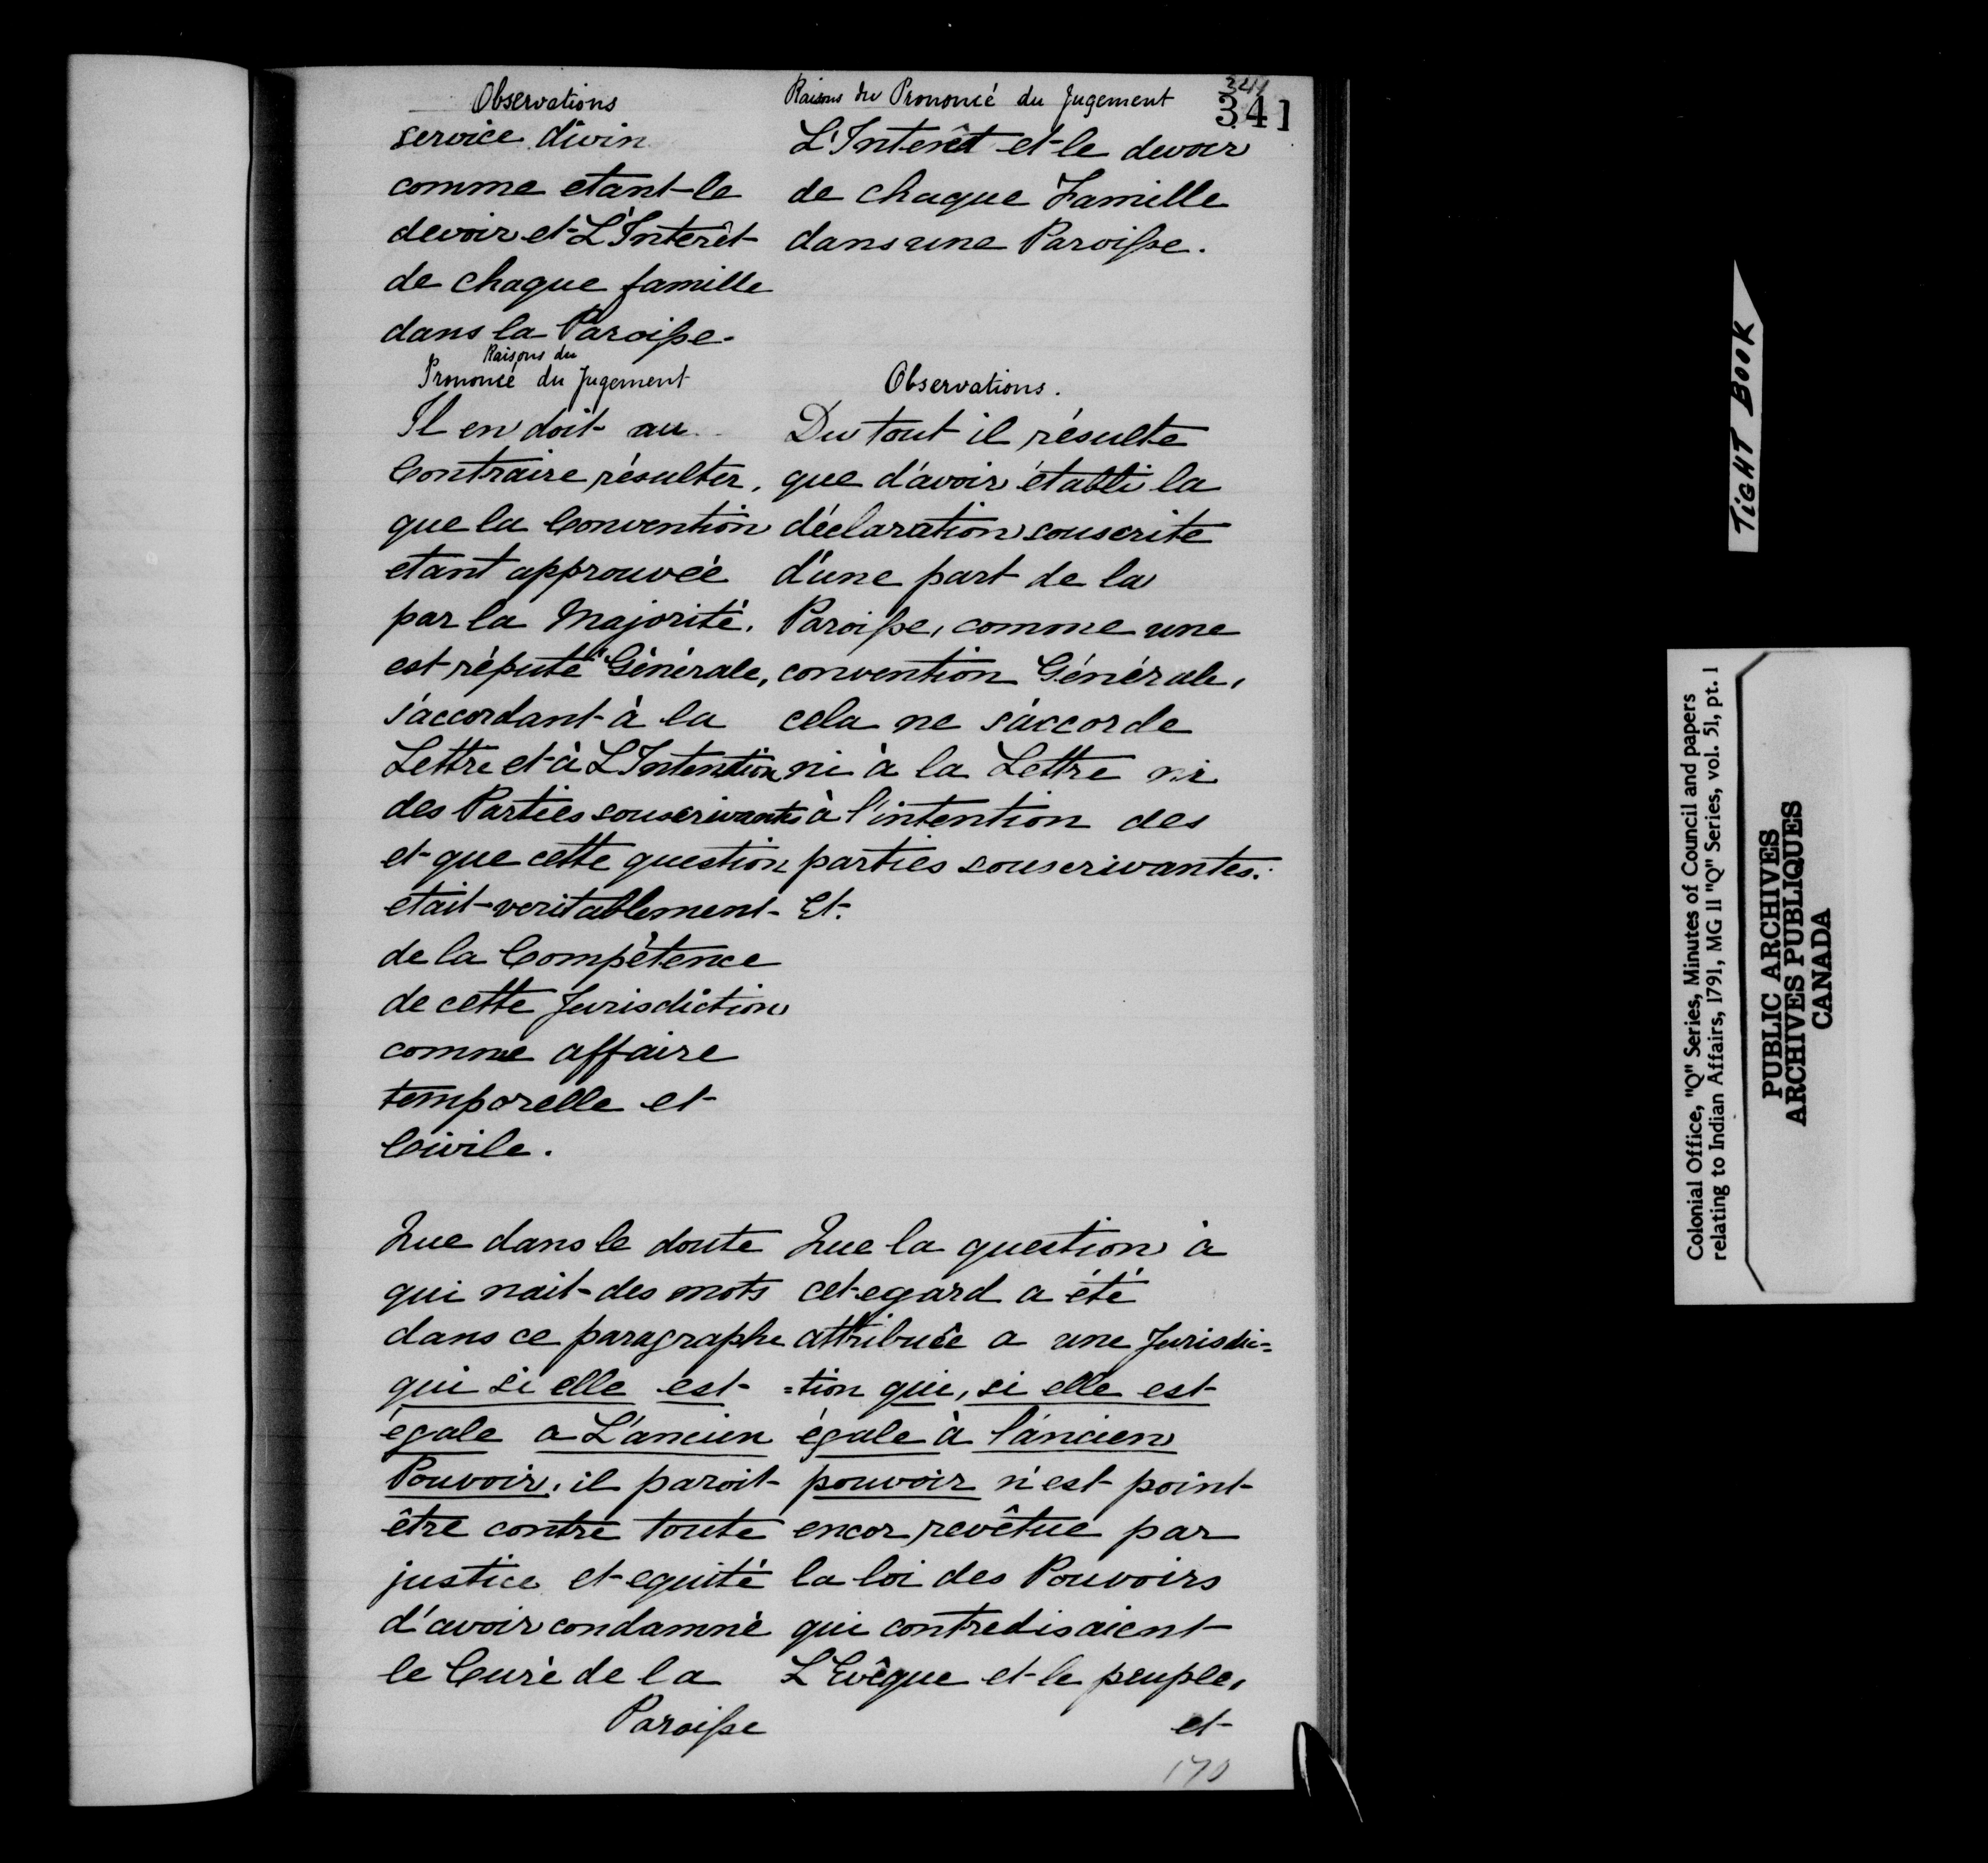 341
341
Observations
service divin
comme etant le
devoir et L'Interêt
de chaque famille
dans la Paroisse.
Raisons du Prononcé du Jugement
L'Interêt et le devoir
de chaque Famille
dans une Paroisse.
Raisons du
Prononcé du Jugement
Il en doit au
Contraire résulter,
que la Convention
etant approuvée
par la Majorité.
est réputé Générale,
s'accordant à la
Lettre et à L'Intention
des Parties souscrivantes
et que cette question
etait veritablement
de la Compétence
de cette Jurisdiction
comme affaire
temporelle et
Civile.
Observations.
Du tout il résulte
que d'avoir établi la
déclaration souscrite
d'une part de la
Paroisse, comme une
convention Générale,
cela ne s'accorde
ni à la Lettre ni
à l'intention des
parties souscrivantes.
Et.
Que dans le doute
qui nait des mots
dans ce paragraphe
qui si elle est
égale a L'ancien
Pouvoir, il paroit
être contre toute
justice et equité
d'avoir condamné
le Curé de la
Paroisse
Que la question à
cet egard a été
attribuée a une Jurisdic=
=tion qui, si elle est
égale à l'ancien
pouvoir n'est point
encor revêtue par
la loi des Pouvoirs
qui contredisaient
L'Evêque et le peuple,
et
170
TIGHT BOOK
Colonial Office, "Q" Series, Minutes of Council and papers
relating to Indian Affairs, 1791, MG 11 "Q" Series, vol. 51, pt. 1
PUBLIC ARCHIVES
ARCHIVES PUBLIQUES
CANADA